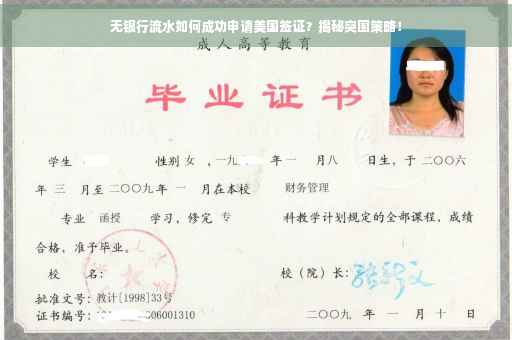 无银行流水如何成功申请美国签证？揭秘突围策略！
成人高等教育
毕业证书
学生 性别 女 ，一九 年 一 月八 日生，于 二〇〇六
年 三 月至 二〇〇九 年 一 月在本校 财务管理
专业 函授 学习，修完 专 科教学计划规定的全部课程，成绩
合格，准予毕业。
校 名： 校（院）长：
批准文号：教计[1998]33号
证书编号： 06001310 二〇〇九 年 一 月 十 日